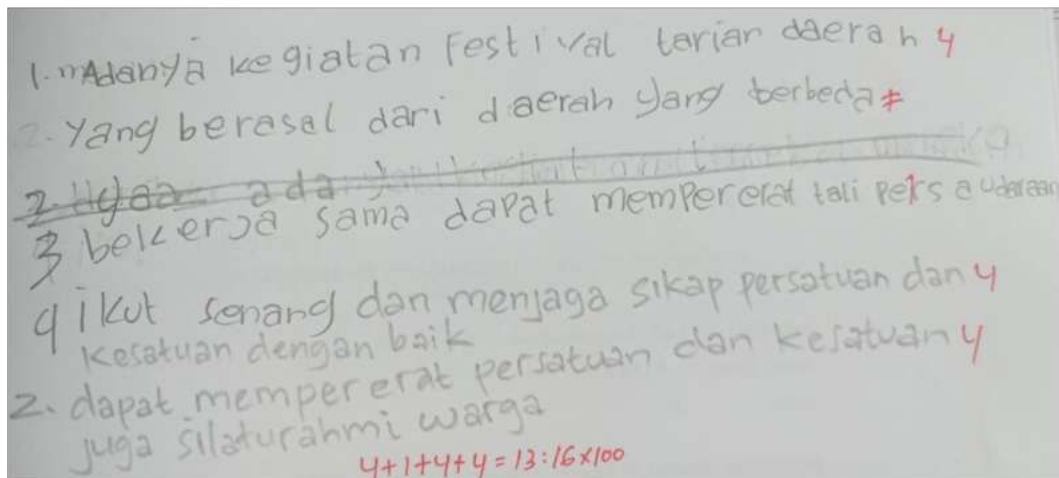 1. Adanya kegiatan Festival tarian daerah 4
2. Yang berasal dari daerah yang berbeda ≠
2. ada
3 bekerja sama dapat mempererat tali persaudaraan 1
4 ikut senang dan menjaga sikap persatuan dan 4
kesatuan dengan baik
2. dapat mempererat persatuan dan kesatuan 4
juga silaturahmi warga
4+1+4+4=13:16x100